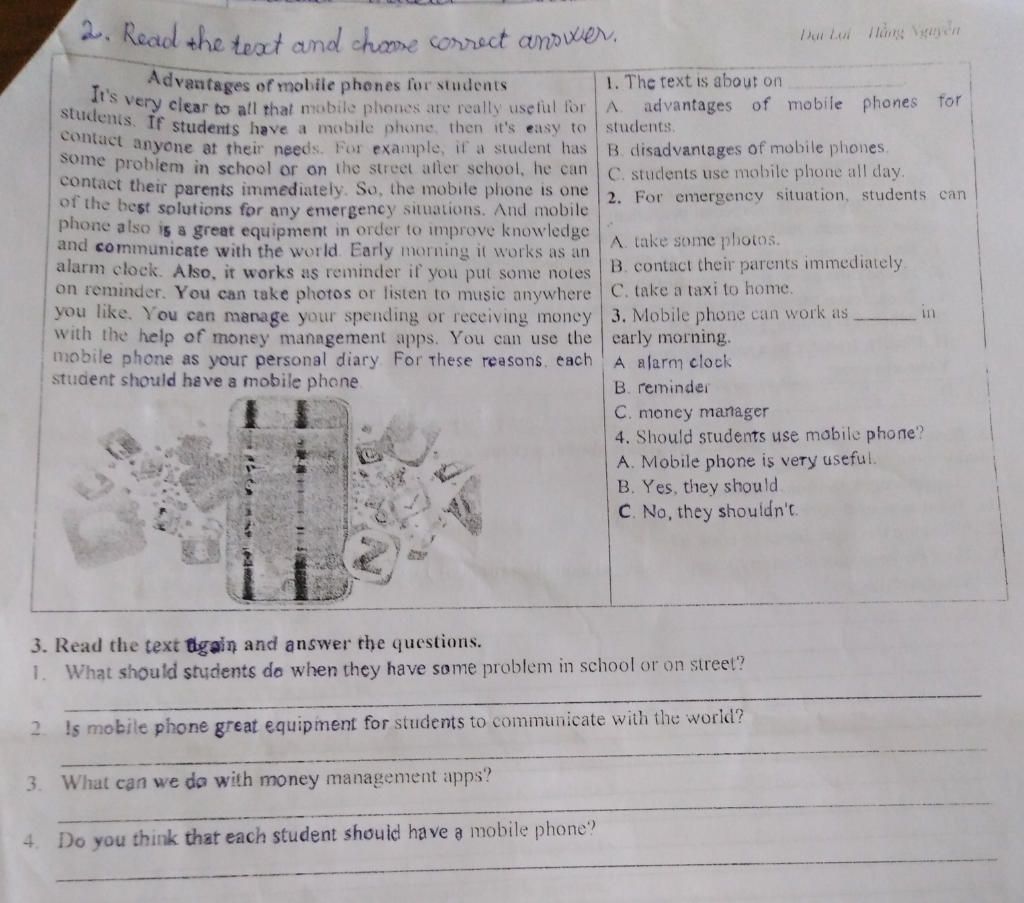 2. Read the text and choose correct answer.
Đại Lợi Hằng Nguyễn
Advantages of mobile phones for students
It's very clear to all that mobile phones are really useful for
students. If students have a mobile phone, then it's easy to
contact anyone at their needs. For example, if a student has
some problem in school or on the street after school, he can
contact their parents immediately. So, the mobile phone is one
of the best solutions for any emergency situations. And mobile
phone also is a great equipment in order to improve knowledge
and communicate with the world. Early morning it works as an
alarm clock. Also, it works as reminder if you put some notes
on reminder. You can take photos or listen to music anywhere
you like. You can manage your spending or receiving money
with the help of money management apps. You can use the
mobile phone as your personal diary. For these reasons, each
student should have a mobile phone.
1. The text is about on ____________
A. advantages of mobile phones for
students.
B. disadvantages of mobile phones.
C. students use mobile phone all day.
2. For emergency situation, students can
A. take some photos.
B. contact their parents immediately.
C. take a taxi to home.
3. Mobile phone can work as _______ in
early morning.
A. alarm clock
B. reminder
C. money manager
4. Should students use mobile phone?
A. Mobile phone is very useful.
B. Yes, they should.
C. No, they shouldn't.
3. Read the text again and answer the questions.
1. What should students do when they have some problem in school or on street?
2. Is mobile phone great equipment for students to communicate with the world?
3. What can we do with money management apps?
4. Do you think that each student should have a mobile phone?